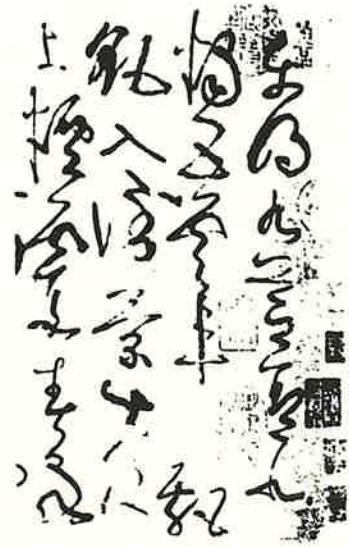 東明九芝蓋北
燭五雲車飄
颻入倒景出没
上煙霞春泉